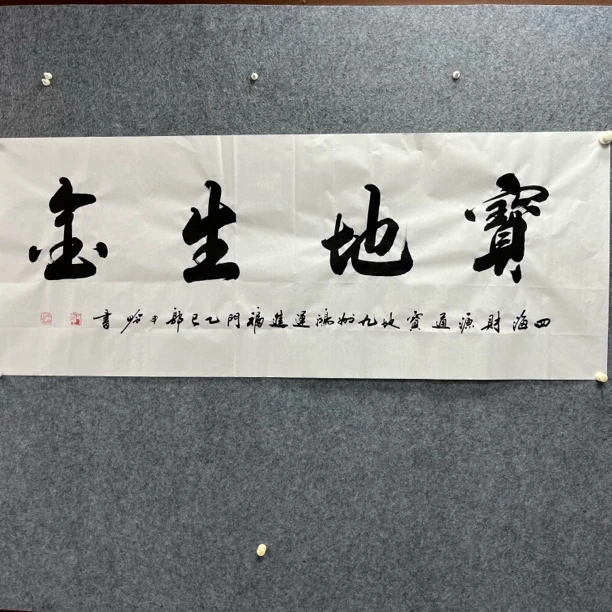 寶地生金
四海財源通寶地九州鴻運進福門乙巳郭書